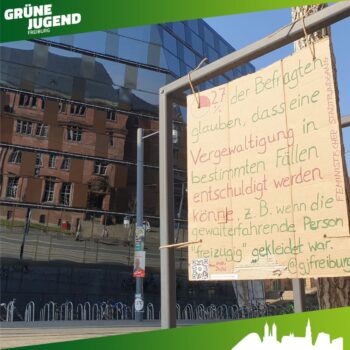 GRÜNE
JUGEND
FREIBURG
27
% der Befragten
glauben, dass eine
Vergewaltigung in
bestimmten Fällen
entschuldigt werden
könne, z.B. wenn die
gewalterfahrende Person
"freizügig" gekleidet war.
@gjfreiburg
FEMINISTISCHER STADTRUNDGANG